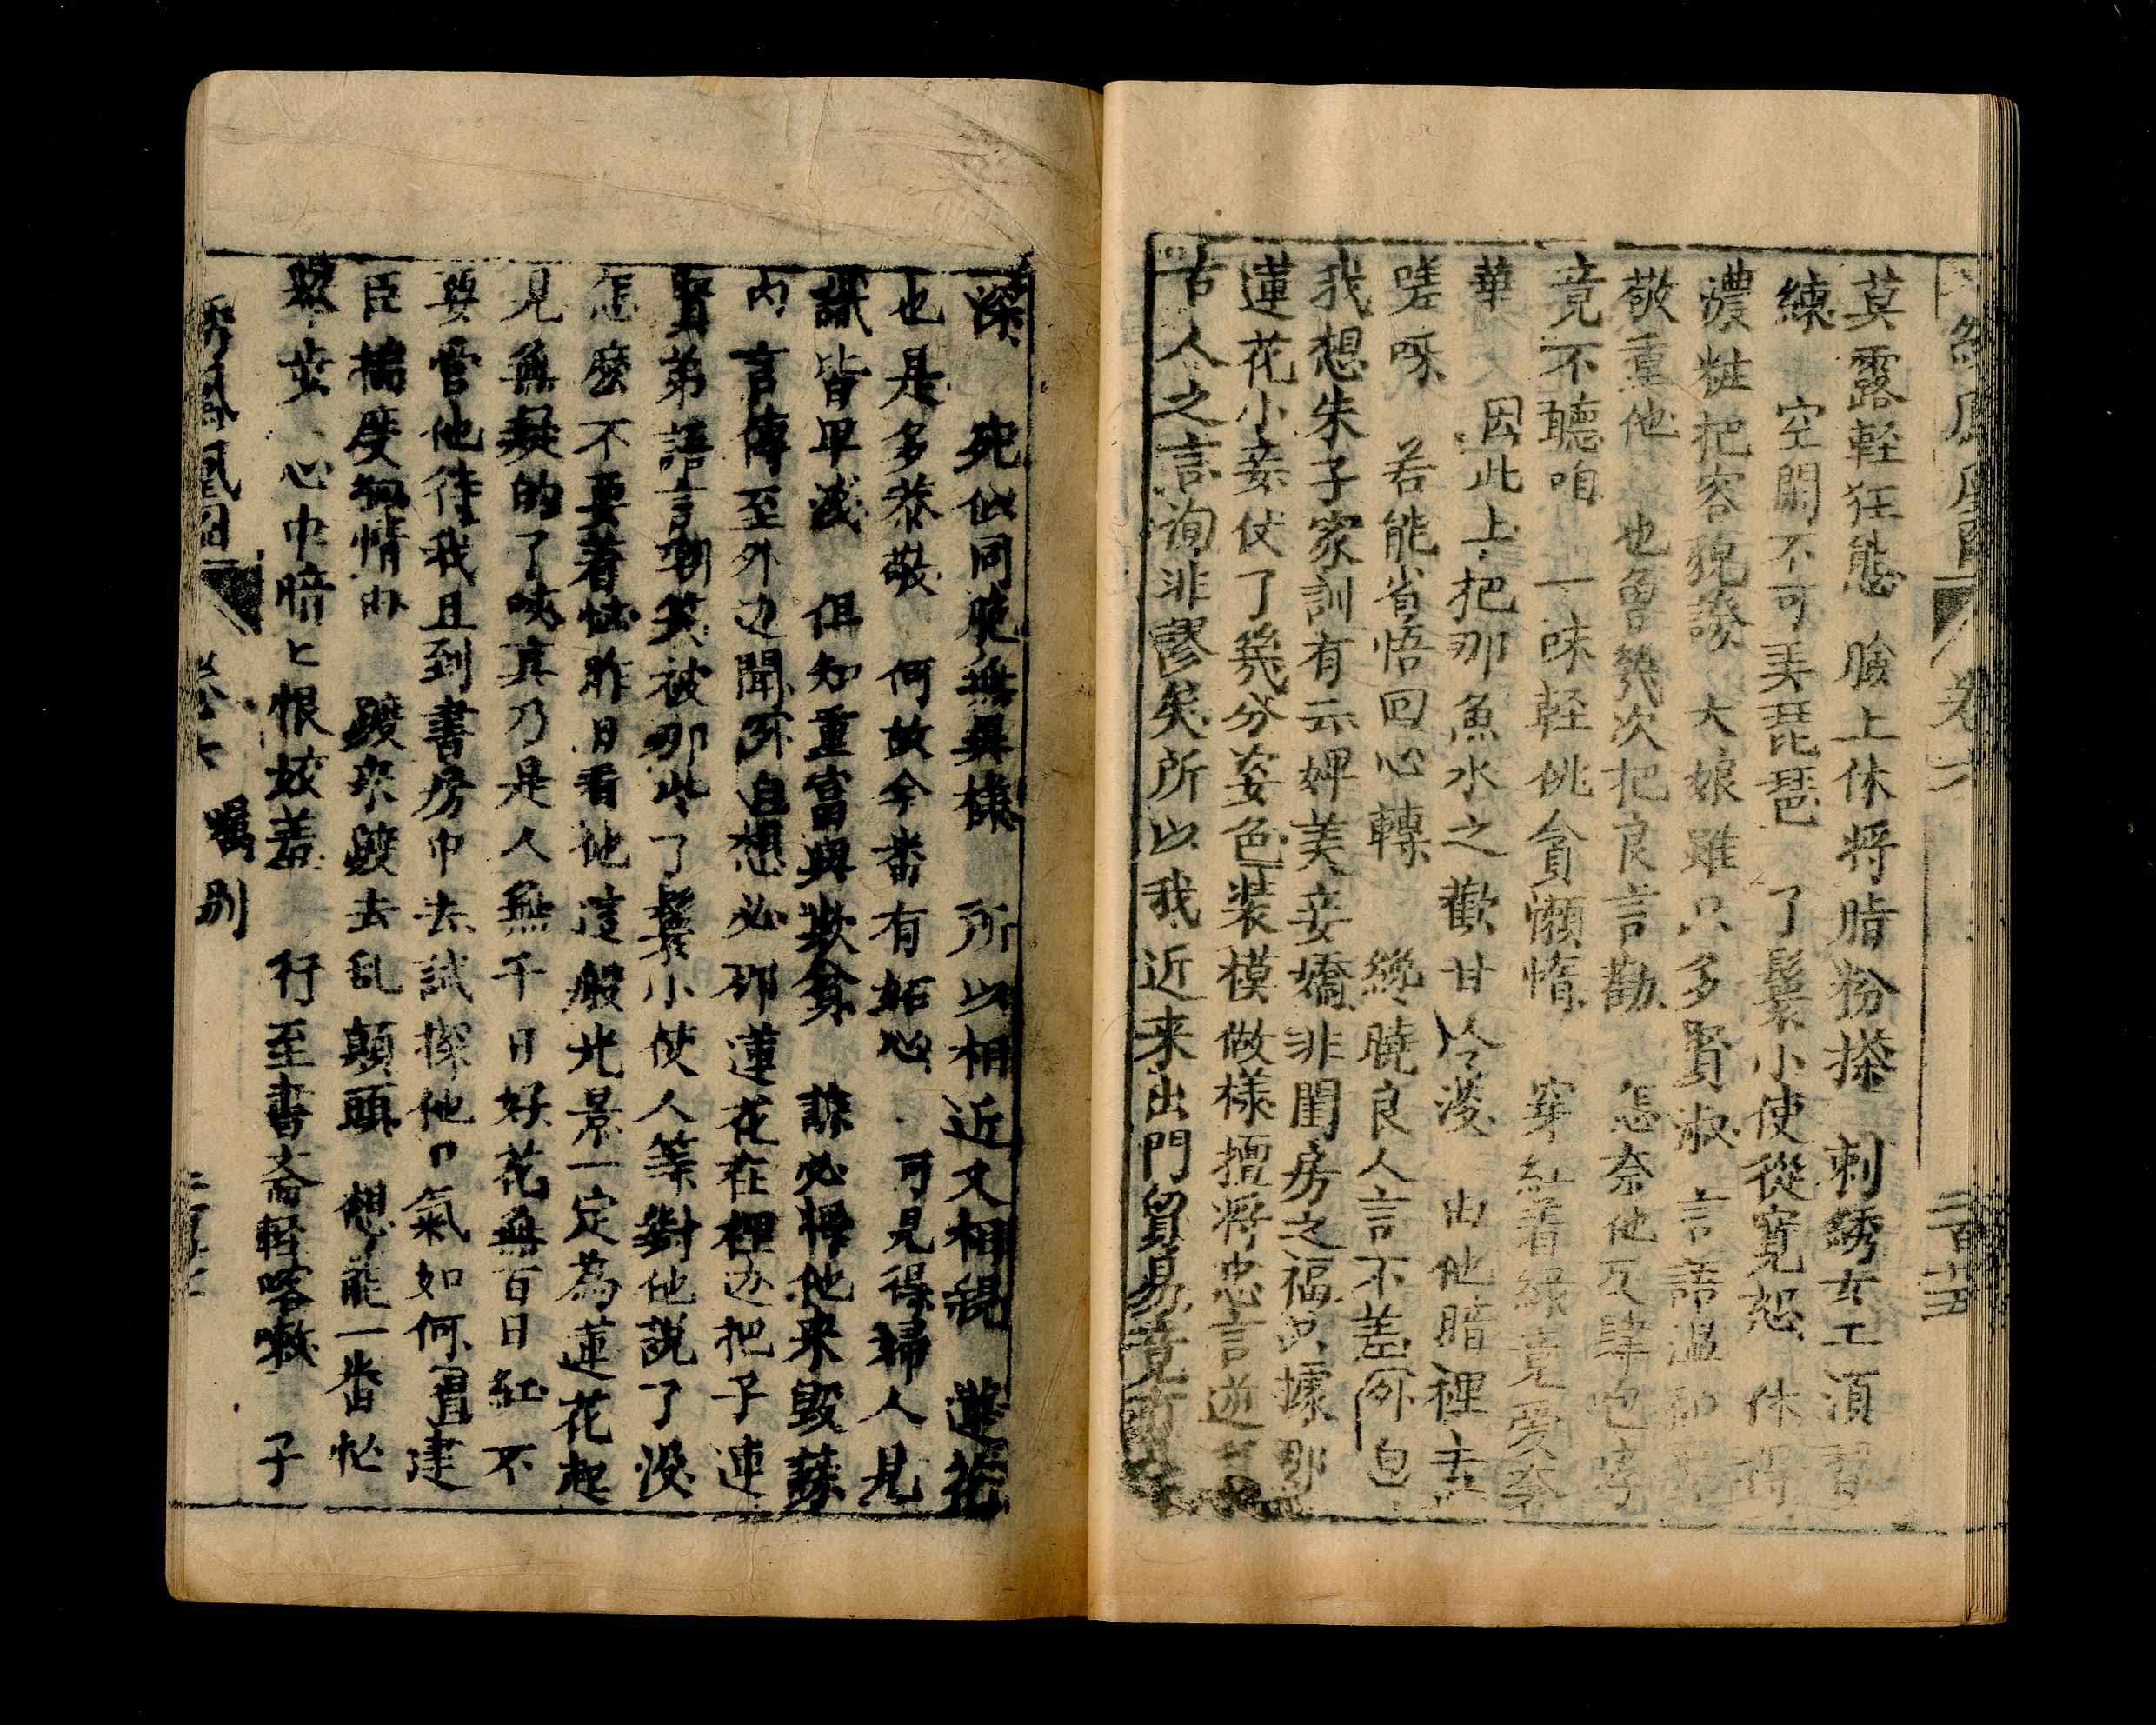 卷六
二百十五
莫露輕狂態　臉上休将脂粉搽　刺綉女工須習
練　空閒不可美琵琶　了鬟小使從寬恕　休得
濃粧把容貌誇　大娘雖只多賢淑　言語溫和
敬重他　也曾幾次把良言勸　怎奈他反肆
竟不聽咱　一味輕佻貪懶惰　穿紅着綠竟愛奢
華　因此上把那魚水之歡甘冷淡　由他暗裡去
嗟呀　若能省悟回心轉　纔曉良人言不差　外白
我想朱子家訓有云婢美妾嬌非閨房之福只據那
蓮花小妾仗了幾分姿色裝模做樣擅将忠言逆
古人之言詢非謬矣所以我近来出門貿易竟
深　宛似同胞無異樣　所以相近又相親　蓮花
也是多恭敬　何故今番有妬心　可見得婦人見
識皆卑淺　但知重富與欺貧　諒必将他来毀謗
內言傳至外边聞　外白想必那蓮花在裡边把子連
賢弟語言嘲笑被那些了鬟小使人等對他說了沒
怎麼不要着怯昨日看他這般光景一定為蓮花起
見無疑的了咦真乃是人無千日好花無百日紅不
要管他待我且到書房中去試探他口氣如何　冒建
臣揣度細情由　踱来踱去乱顛頭　想罷一番忙
移步　心中暗匕恨姣羞　行至書斋輕咯嗽　子
鳳凰圖
卷六　嘱別